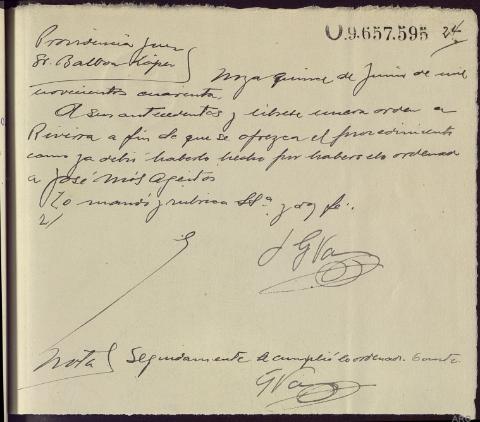 O.9.657.595 24
Providencia Juez
Sr. Balboa López
Noya quince de Junio de mil
novecientos cuarenta
A sus antecedentes y líbrese nueva orden a
Riveira a fin de que se ofrezca el procedimiento
como ya debió haberlo hecho por habérselo ordenado
a José Mós Ageitos
Lo mandó y rubrica SSª y doy fe.
Nota Seguidamente se cumplió lo ordenado.